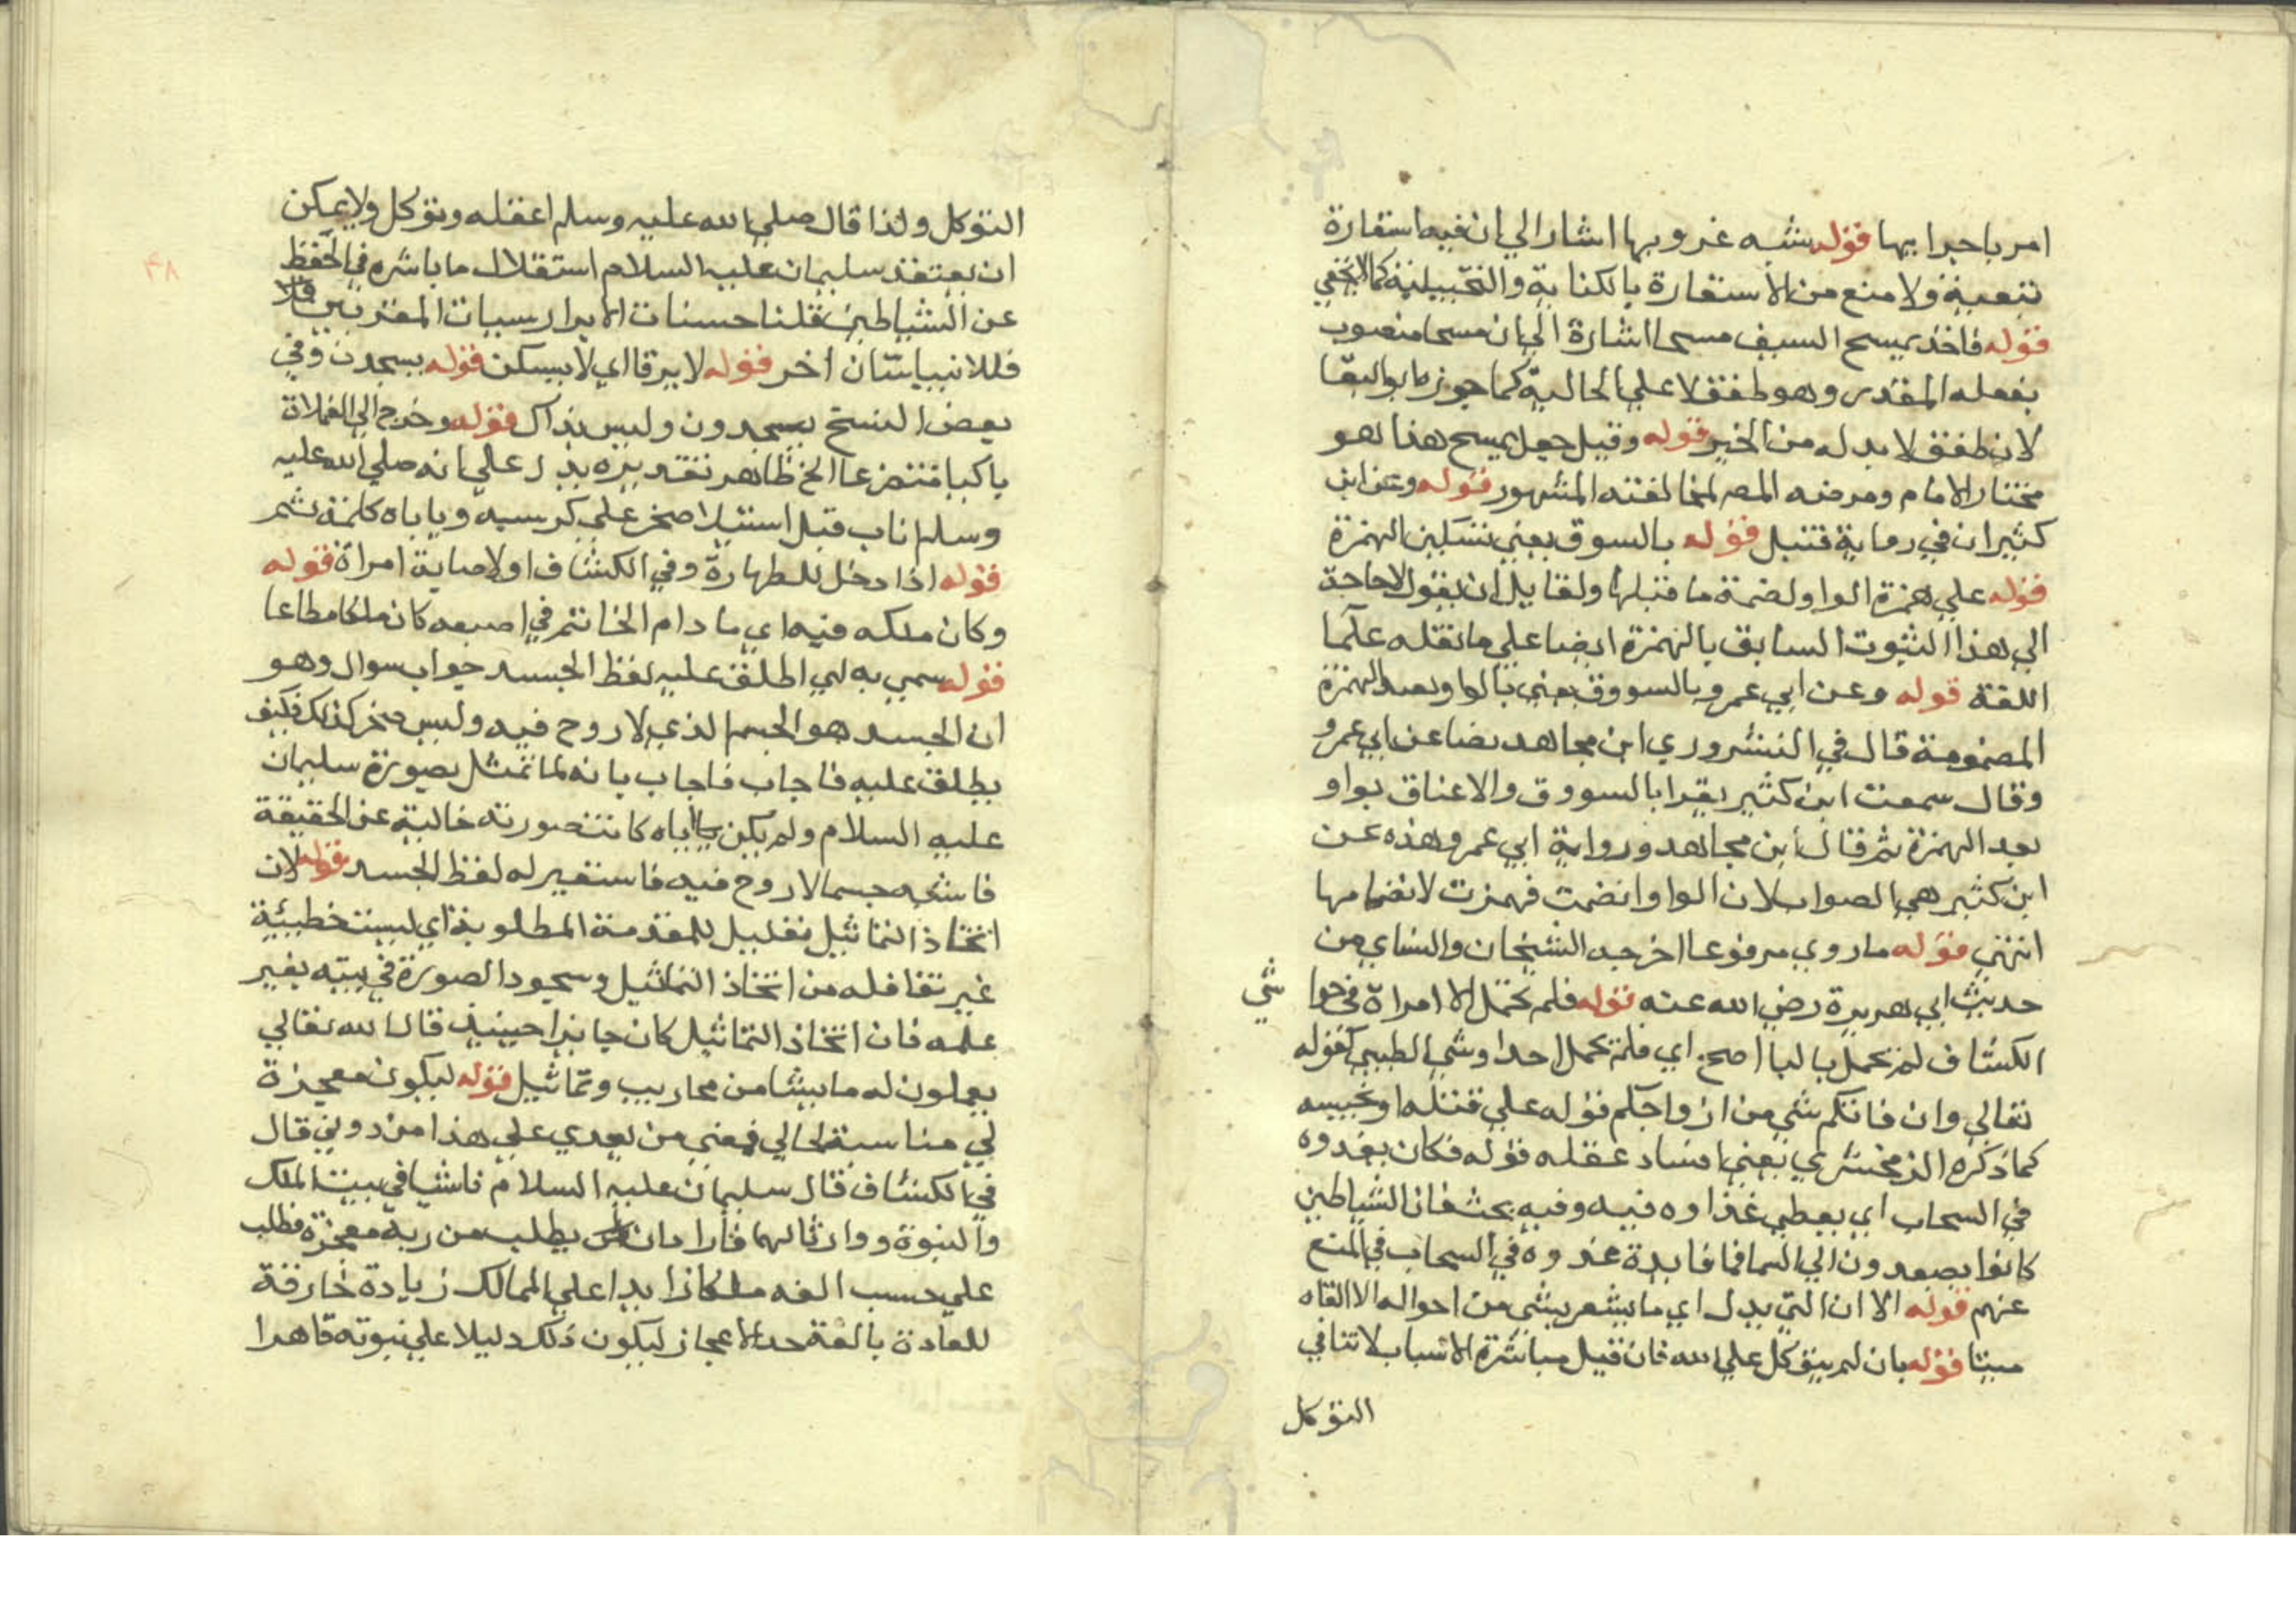 امر باجرايها قوله شبه غروبها اشار الي ان فيه استعارة
تبعية ولا منع من الاستعارة بالكناية والتخييلية كما لا يخفي
قوله فاخذ يمسح السيف مسحا اشارة الي ان مسحا منصوب
بفعله المقدر وهو طفق لا علي الحالية كما جوزه ابو البقا
لان طفق لا بد له من الخبر قوله وقيل جعل يمسح هذا هو
مختار الامام ومرضه المص لمخالفته المشهور قوله وعن ابن
كثير ان في رواية قنبل قوله بالسوق يعني بتسكين الهمزة
قوله علي همزة الواو لضمة ما قبلها ولقايل ان يقول لا حاجة
الي هذا الثبوت السابق بالهمزة ايضا علي ما نقله علما
اللغة قوله وعن ابي عمرو بالسووق يعني بالواو بعد الهمزة
المضمومة قال في النشر وروي ابن مجاهد نصا عن ابي عمرو
وقال سمعت ابن كثير يقرا بالسووق والاعناق بواو
بعد الهمزة ثم قال ابن مجاهد ورواية ابي عمرو هذه عن
ابن كثير هي الصواب لان الواو انضمت فهمزت لانضمامها
انتهي قوله ما روي مرفوعا اخرجه الشيخان والنساي من
حديث ابي هريرة رضي الله عنه قوله فلم تحمل الا امراة في حوا
شي
الكشاف لم تحمل باليا اصح اي فلم تحمل احد او شي الطيبي كقوله
تعالي وان فاتكم شي من ازواجكم قوله علي قتله او تخبيسه
كما ذكره الزمخشري يعني افساد عقله قوله فكان يغدوه
في السحاب اي يعطي غذاوه فيه وفيه بحث فان الشياطين
كانوا يصعدون الي السما فما فايدة غدوه في السحاب في المنع
عنهم قوله الا ان التي بدل اي ما يشعر بشي من احواله الا القاه
ميتا قوله بان لم يتوكل علي الله فان قيل مباشرة الاسباب لا تنافي
التوكل
التوكل ولذا قال صلي الله عليه وسلم اعقله وتوكل ولا يمكن
ان يعتقد سليمان عليه السلام استقلال ما باشره في الحفظ
عن الشياطين قلنا حسنات الابرار سيات المقربين
فللانبيا شان اخر قوله لا يرقا اي لا يسكن قوله يسجدن وفي
بعض النسخ يسجدون وليس بذاك قوله وخرج الي الفلاة
باكيا متضرعا الخ ظاهر تقديره يدل علي انه صلي الله عليه
وسلم اناب قبل استيلا صخر علي كرسيه وياباه كلمة ثم
قوله اذا دخل للطهارة وفي الكشاف او لاصابة امراة قوله
وكان ملكه فيه اي ما دام الخاتم في اصبعه كان ملكا مطاعا
قوله سمي به اي اطلق عليه لفظ الجسد جواب سوال وهو
ان الجسد هو الجسم الذي لا روح فيه وليس صخر كذلك فكيف
يطلق عليه فاجاب فاجاب بانه لما تمثل بصورة سليمان
عليه السلام ولم يكن اياه كانت صورته خالية عن الحقيقة
فاشبه جسما لا روح فيه فاستعير له لفظ الجسد قوله لان
اتخاذ التماثيل تعليل للمقدمة المطلوبة اي ليست خطيئة
غير تغافله من اتخاذ التماثيل وسجود الصورة في بيته بغير
علمه فان اتخاذ التماثيل كان جايزا حينيذ قال الله تعالي
يعملون له ما يشا من محاريب وتماثيل قوله ليكون معجزة
لي مناسبة لحالي فمعني من بعدي علي هذا من دوني قال
في الكشاف قال سليمان عليه السلام ناشيا في بيت الملك
والنبوة ووارثا لهما فاراد ان يطلب من ربه معجزة فطلب
علي حسب الفه ملكا زايدا علي الممالك زيادة خارقة
للعادة بالغة حد الاعجاز ليكون ذلك دليلا علي نبوته قاهرا